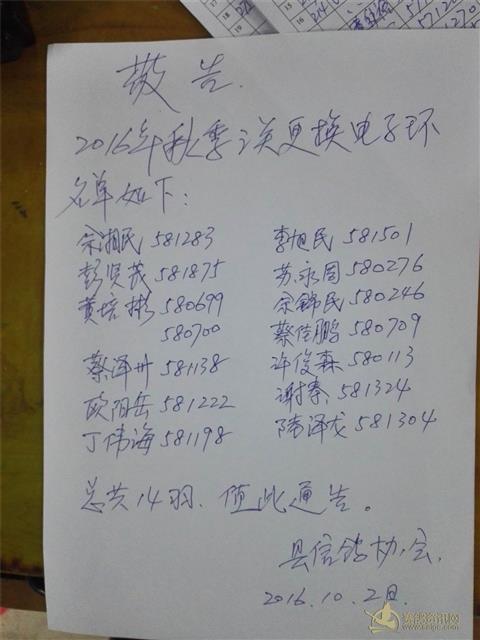 敬告
2016年秋季误更换电子环
名单如下:
余湘民 581283
彭贤茂 581875
黄培彬 580699
580700
蔡泽州 581138
欧阳岳 581222
丁伟海 581198
李旭民 581501
苏永周 580276
余锦民 580246
蔡佳鹏 580709
许俊森 580113
谢泰 581324
陈泽龙 581304
总共14羽、值此通告。
县信鸽协会
2016.10.2日
赛鸽资讯网